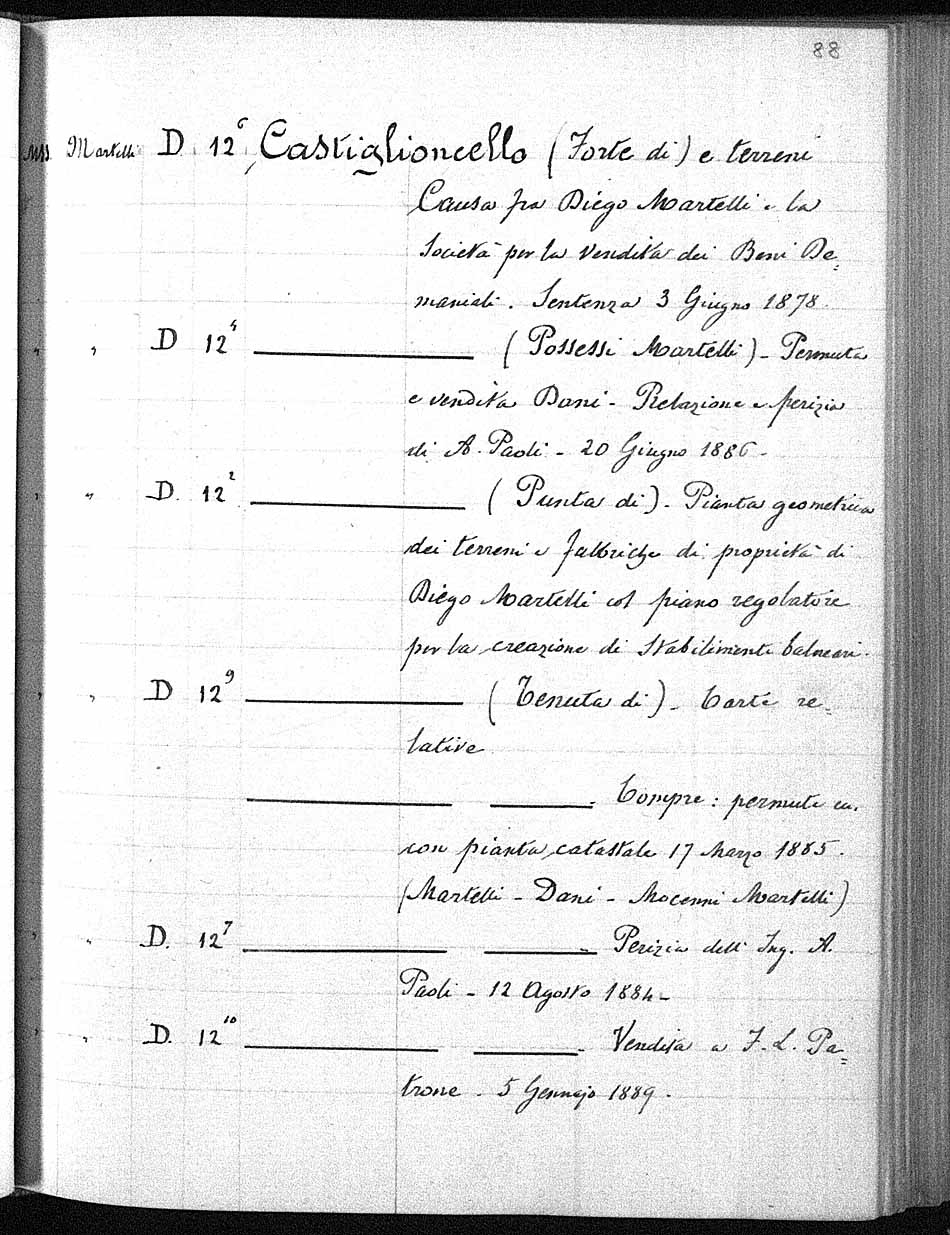 88
Mss. Martelli D 12⁶ Castiglioncello (Forte di) e terreni
Causa fra Diego Martelli e la
Società per la vendita dei Beni De=
maniali. Sentenza 3 Giugno 1878.
" " D 12⁴ ——— (Possessi Martelli) - Permuta
e vendita Dani - Relazione e perizia
di A. Paoli - 20 Giugno 1886 -
" " D. 12² ——— (Punta di) - Pianta geometrica
dei terreni e fabbriche di proprietà di
Diego Martelli col piano regolatore
per la creazione di Stabilimenti balneari.
" " D 12⁹ ——— (Tenuta di) - Carte re=
lative
——— ——— . Compre: permute ec.
con pianta catastale 17 Marzo 1885.
(Martelli - Dani - Mocenni Martelli)
" " D. 12⁷ ——— ——— . Perizia dell' Ing. A.
Paoli - 12 Agosto 1884 -
" " D. 12¹⁰ ——— ——— . Vendita a F. L. Pa=
trone - 5 Gennajo 1889.